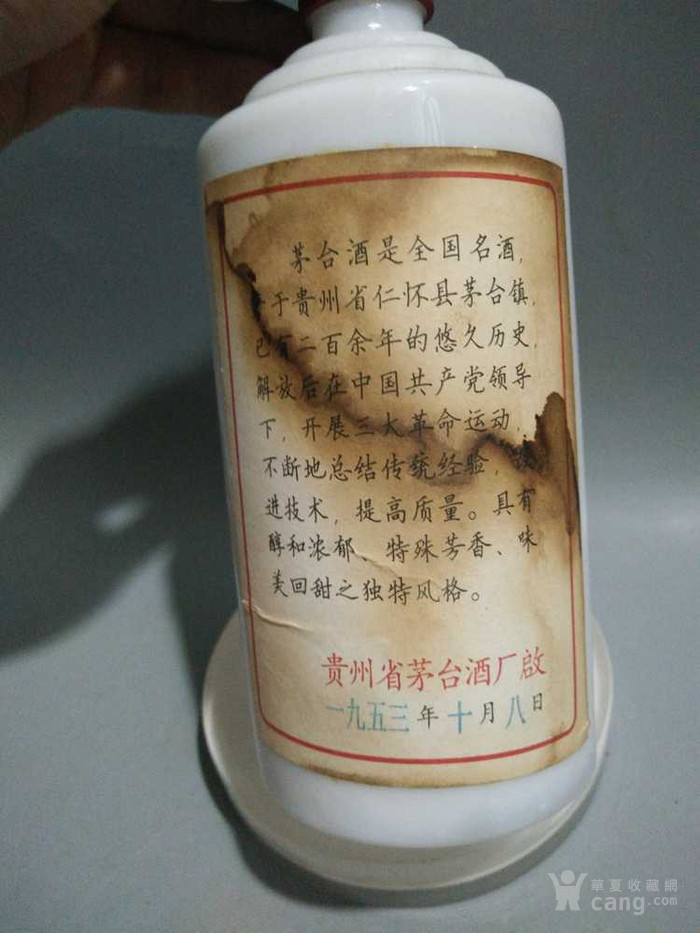 茅台酒是全国名酒,
于贵州省仁怀县茅台镇,
已有二百余年的悠久历史,
解放后在中国共产党领导
下,开展三大革命运动,
不断地总结传统经验,
进技术,提高质量。具有
醇和浓郁、特殊芳香、味
美回甜之独特风格。
贵州省茅台酒厂啟
一九五三年十月八日
華夏收藏網
cang.com